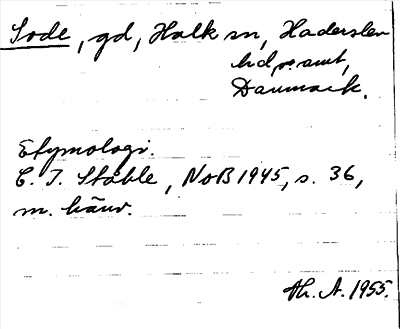 Sode, gd, Halk sn, Haderslev
hd o. amt,
Danmark.
Etymologi.
C. I. Ståhle, NoB 1945, s. 36,
m. hänv.
Th. A. 1955.